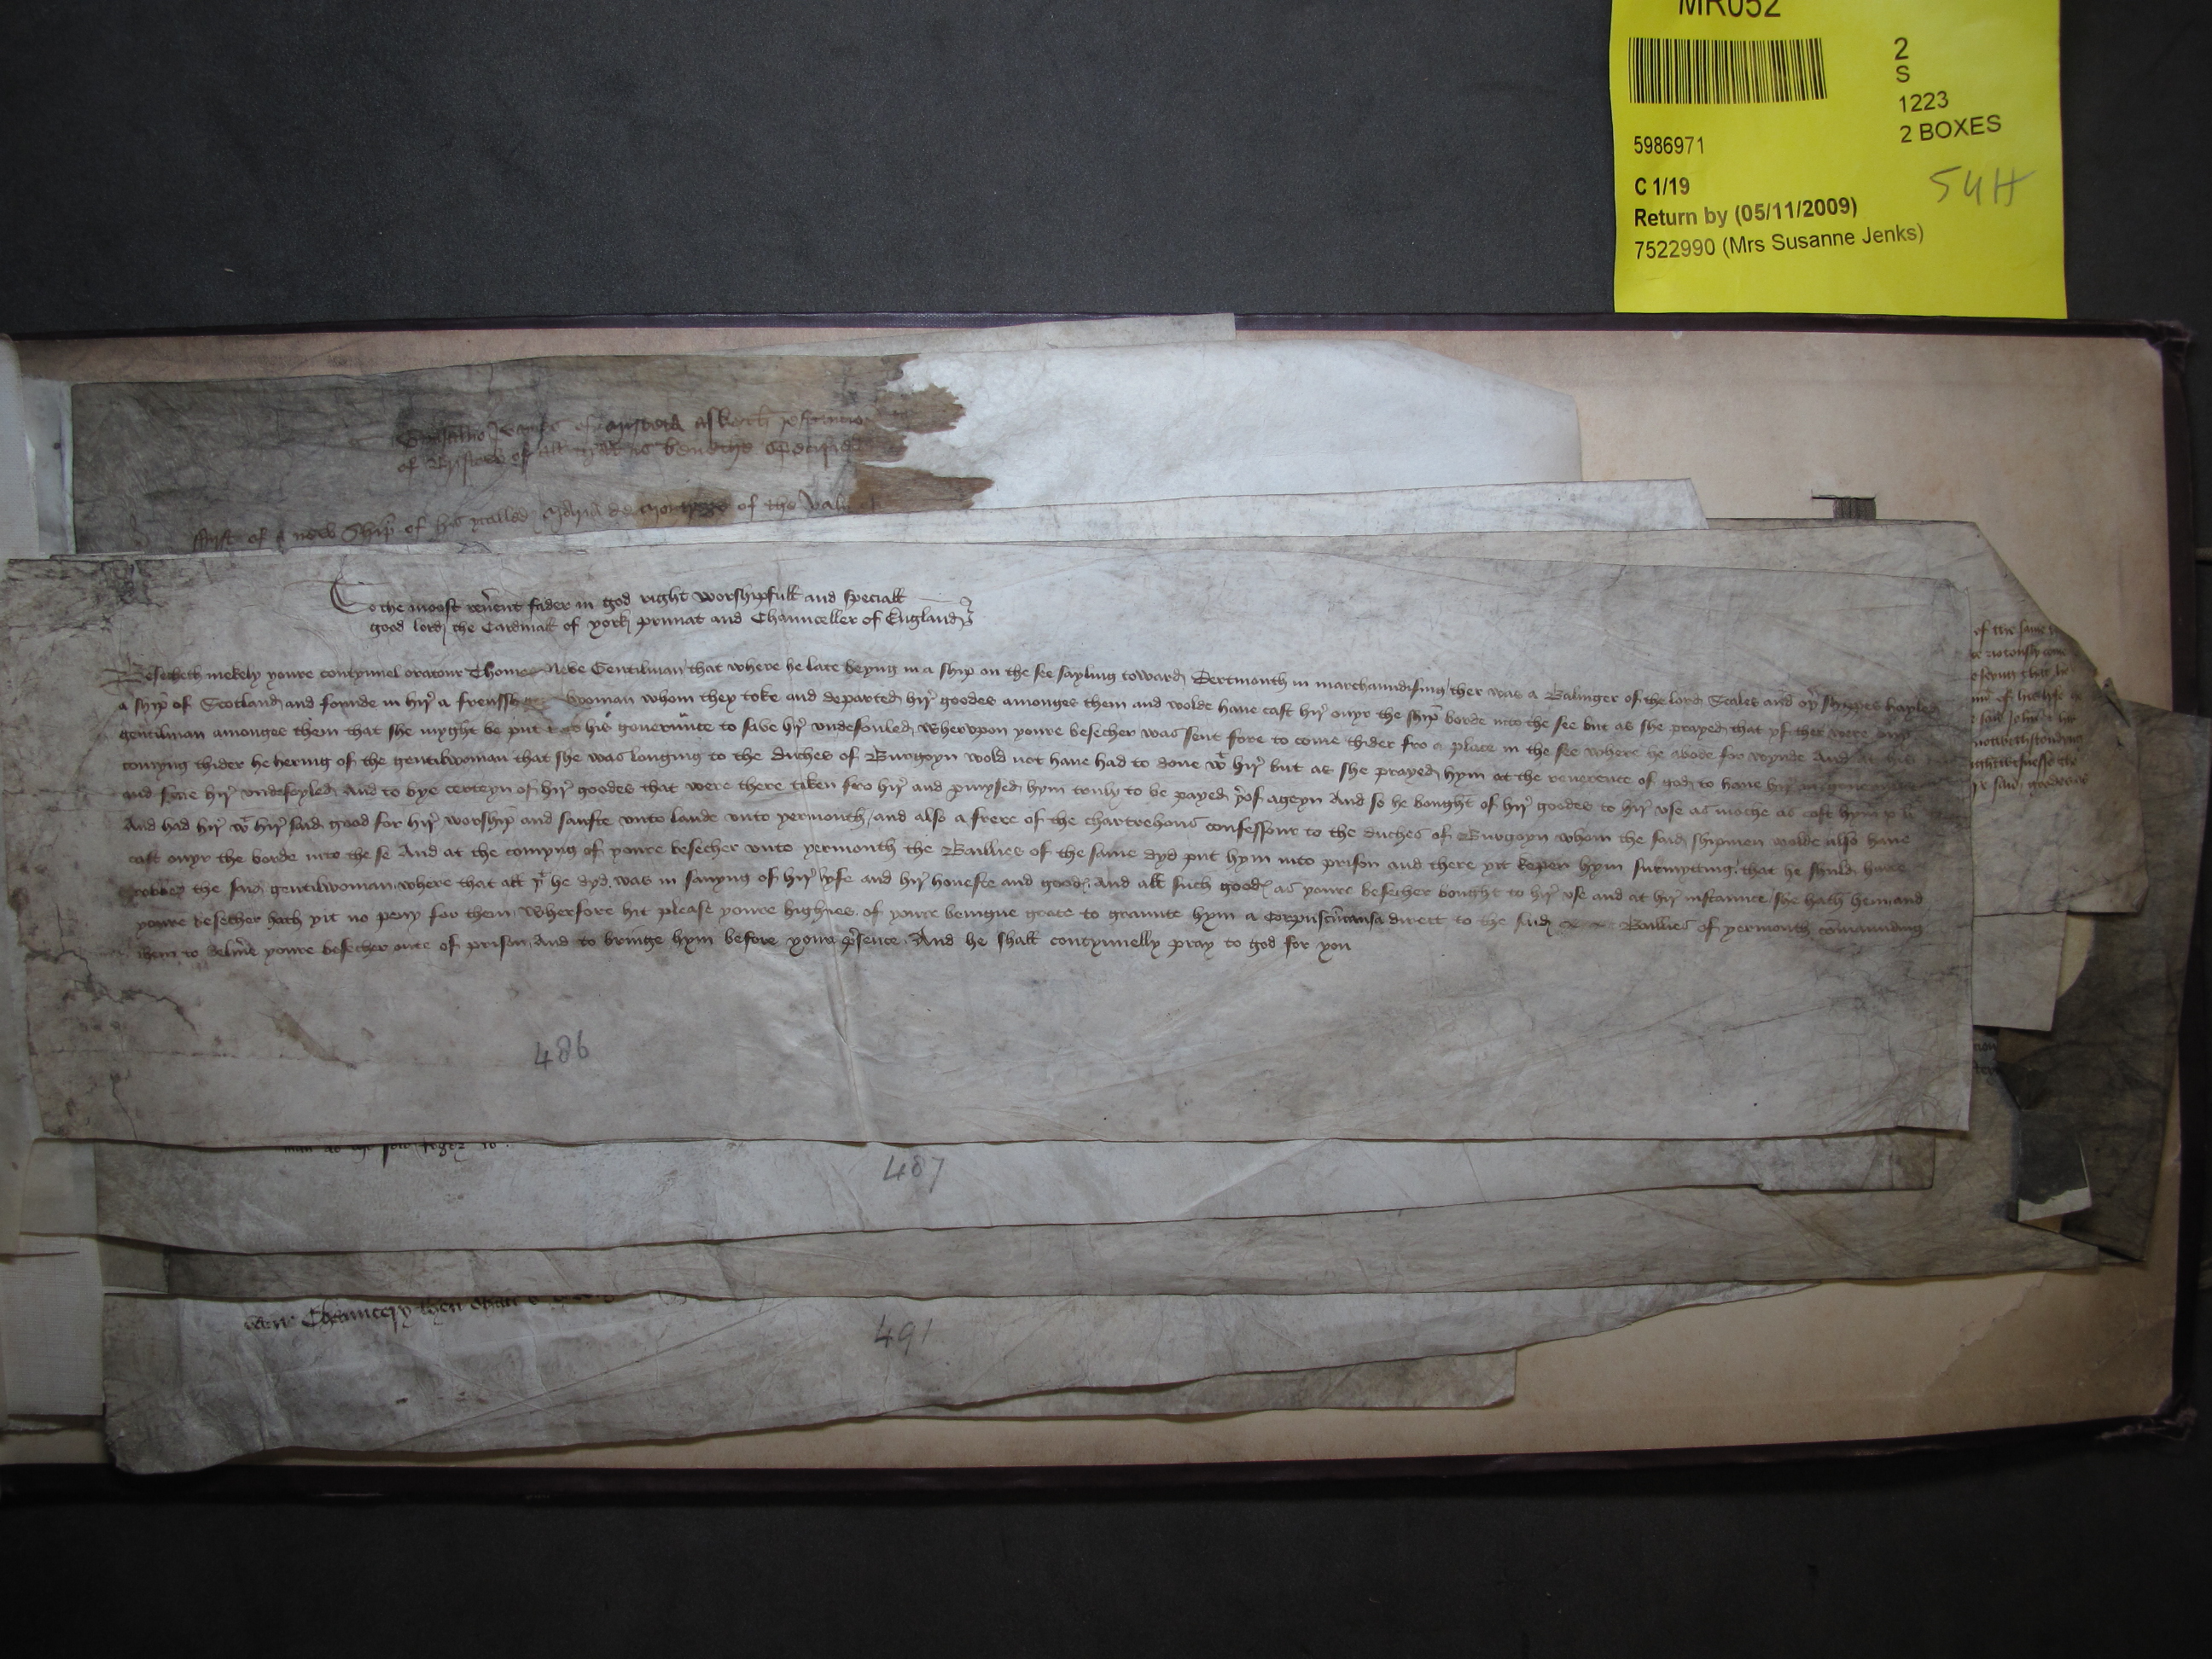 MR052
2
S
1223
2 BOXES
5986971
C 1/19
54H
Return by (05/11/2009)
7522990 (Mrs Susanne Jenks)
of the val
of a new Ship of his called
To the moost reu'ent fader in god right worshipfull and speciall
good lord the Cardinall of york primat and Chaunceller of England
Besecheth mekely youre contynuel oratour Thomas Neve Gentilman that where he late beyng in a ship on the see sayling toward Dertmouth in marchaundising ther was a Balinger of the lord Scales and oþ' shippes
a ship of Scotland and founde in hir' a frenssh woman whom they toke and departed hir' goodes amonges them and wolde haue cast hir' ouyr the ship borde into the see but as she prayed that yf ther were any
gentilman amonges them that she myght be put to his gouernunce to save hir' undefouled Wherupon youre besecher was sent fore to come thider fro a place in the see where he abode for wynde And at his
comyng thider he hering of the gentilwoman that she was longing to the duches of Burgoyn wold not haue had to done wt hir' but as she prayed hym at the reuerence of god to haue hir' in gouernaunce
and save hir' undefoyled And to bye certeyn of hir' goodes that were there taken fro hir' and promysed hym truly to be payed þ'of ageyn And so he bought of hir' goodes to hir' use as moche as cost hym x li
And had hir' wt hir' said good for hir' worship and saufte unto lande unto yermouth and also a frere of the chartrehous confessour to the duches of Burgoyn whom the said shipmen wolde also haue
cast ouyr the borde into the se And at the comyng of youre besecher unto yermouth the Baillies of the same dyd put hym into prison and there yit kepen hym surmytting that he shuld haue
robbed the said gentilwoman where that all þt he dyd was in sauyng of hir' lyfe and hir' honeste and good And all such good as youre besecher bought to hir' use and at hir' instaunce she hath hem and
youre besecher hath yit no peny for them Wherfore hit please youre highnes of youre benigne grace to graunte hym a Corpus cu' causa direct to the said Baillies of yermouth comaunding
them to deliu'e youre besecher oute of prison And to bringe hym before youre p'sence And he shall contynuelly pray to god for you
486
487
Chauncery
491